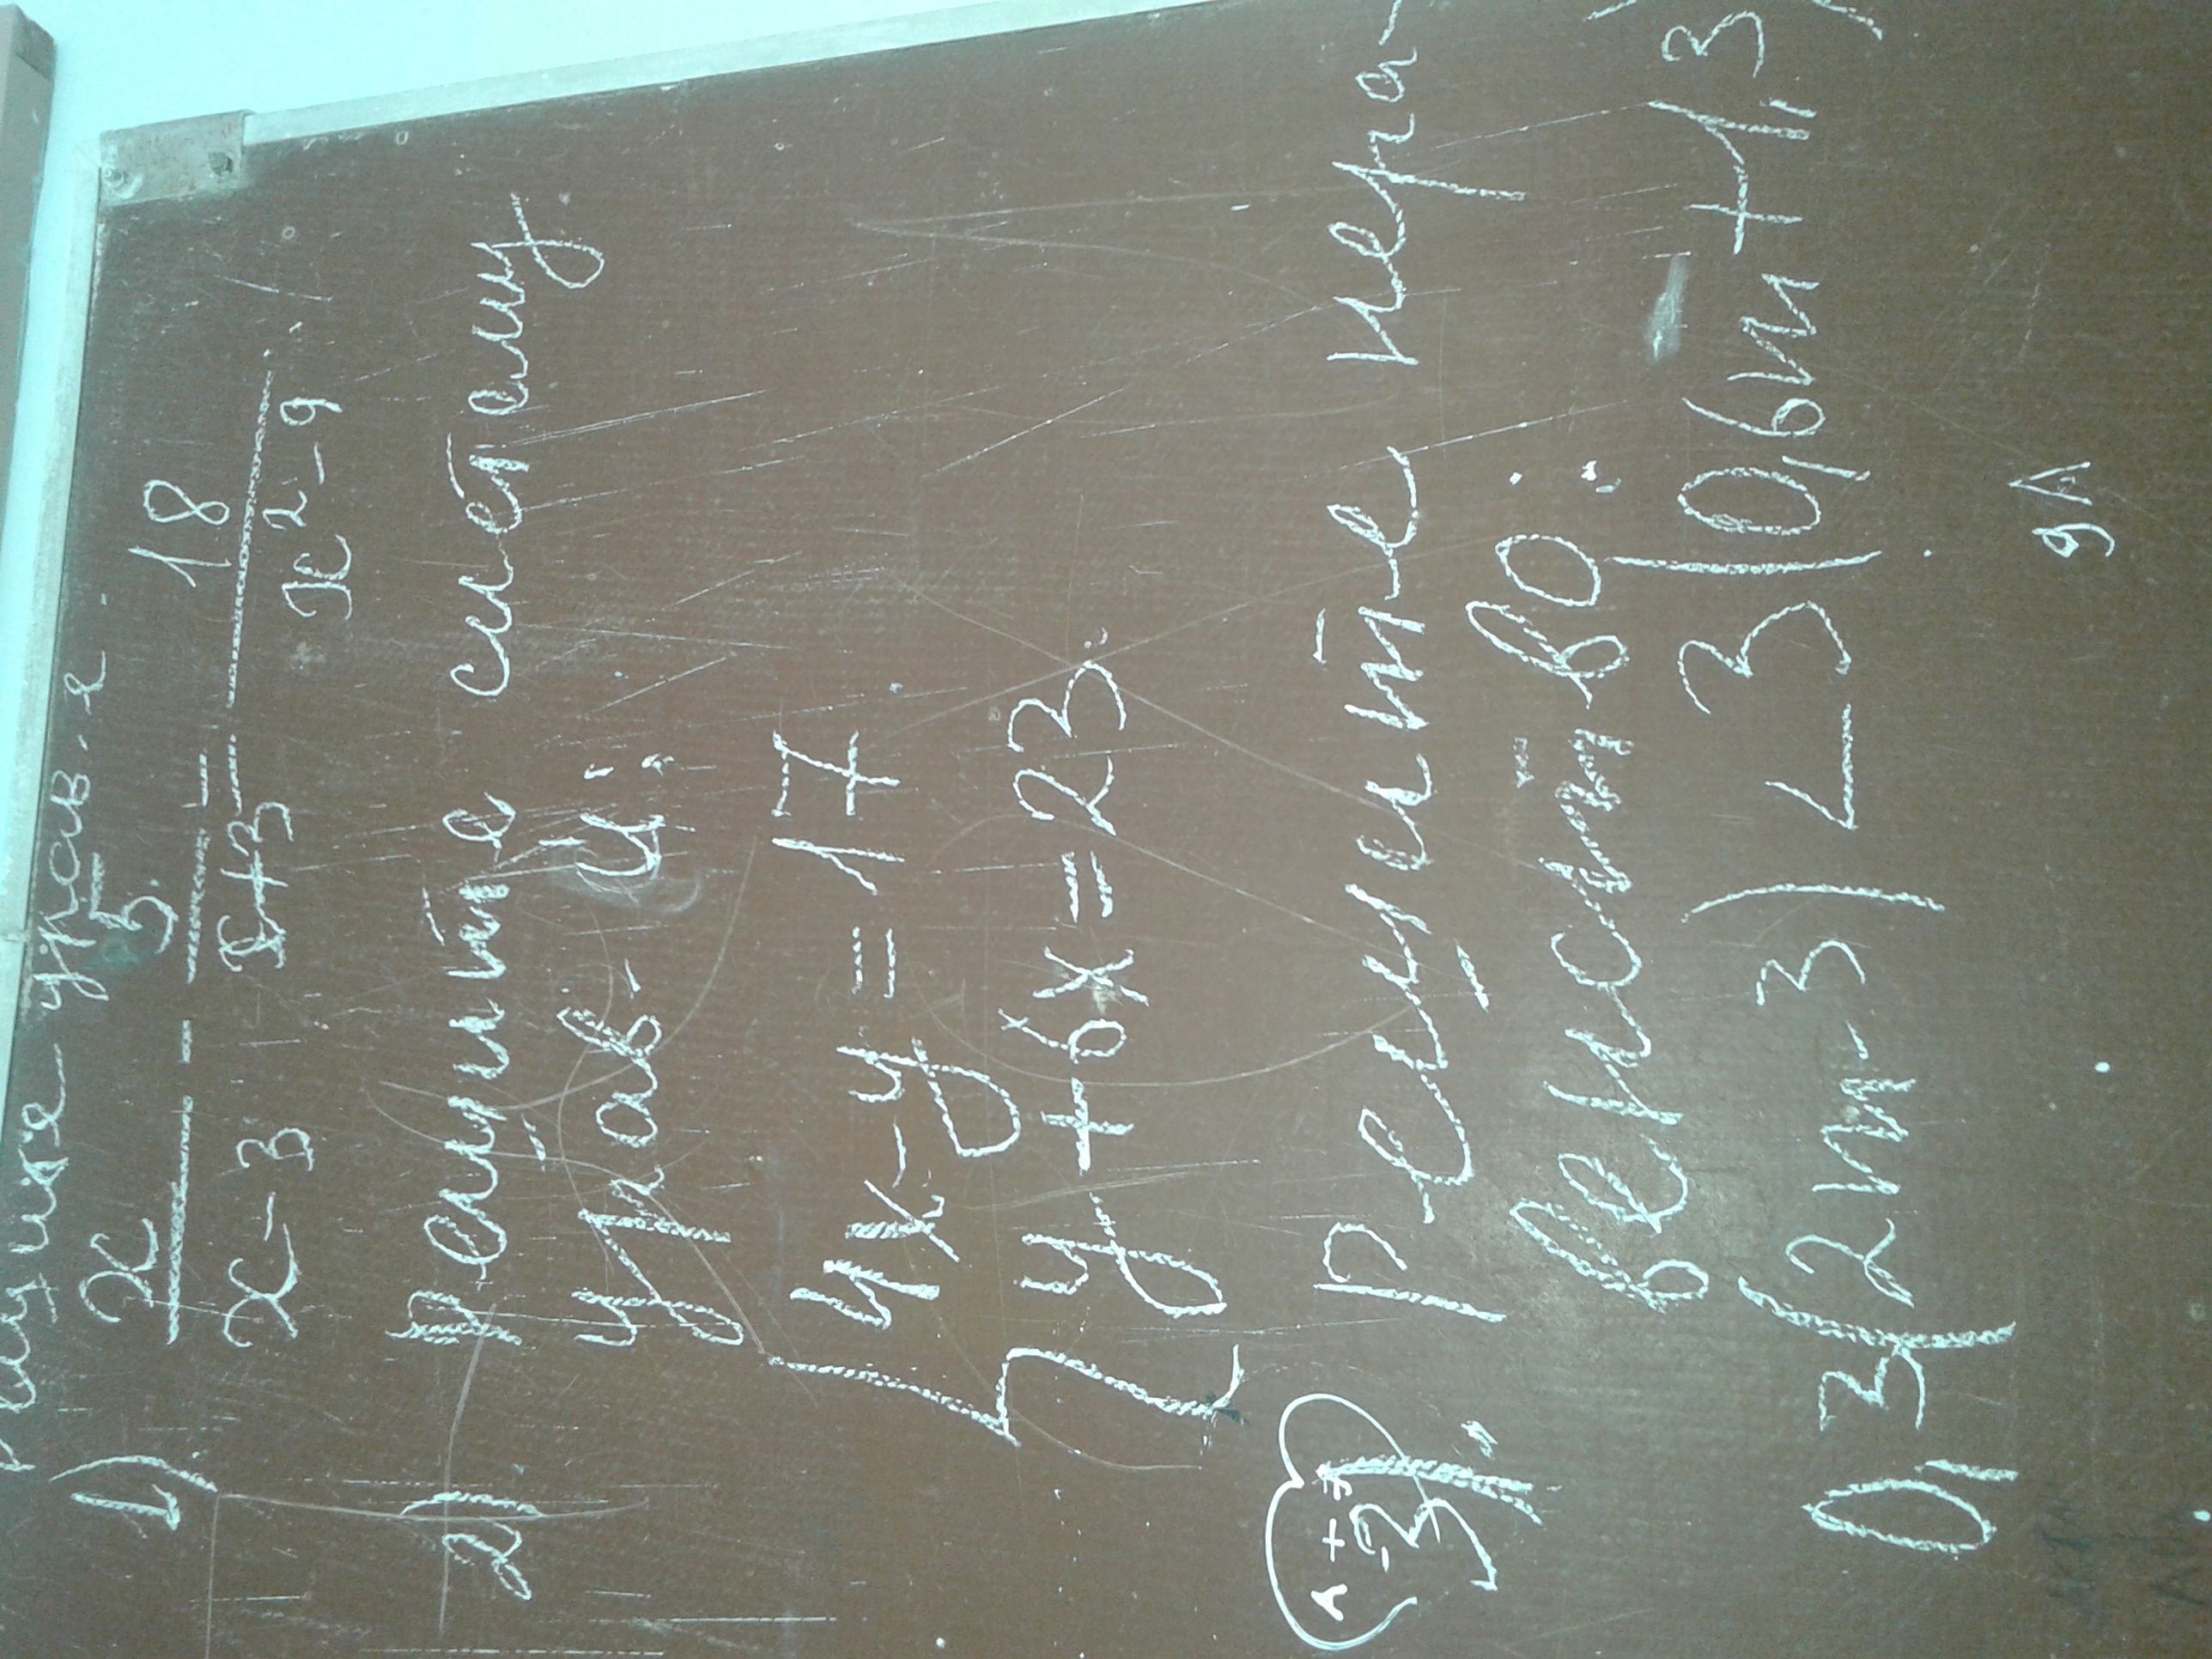 решите урав-е
1) x/(x-3) - 5/(x+3) = 18/(x²-9)
2) решите систему
урав-й:
{ 4x-y=17
{ y+6x=23.
3) решите нера-
венство:
0,3(2m-3)<3(0,6m+1,3)
9А